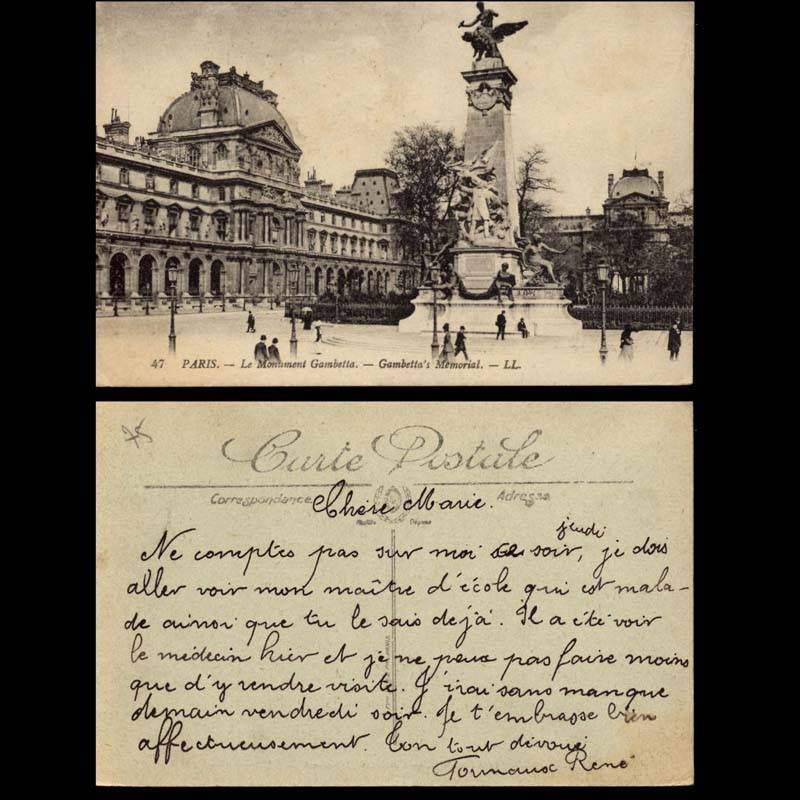 47 PARIS. — Le Monument Gambetta. — Gambetta's Memorial. — LL.
75
Carte Postale
Correspondance
Adresse
Chère Marie.
jeudi
Ne comptes pas sur moi ce soir, je dois
aller voir mon maître d'école qui est mala-
de ainsi que tu le sais dejà. Il a été voir
le médecin hier et je ne peux pas faire moins
que d'y rendre visite. J'irai sans manque
demain vendredi soir. Je t'embrasse bien
affectueusement. Ton tout dévoué
René